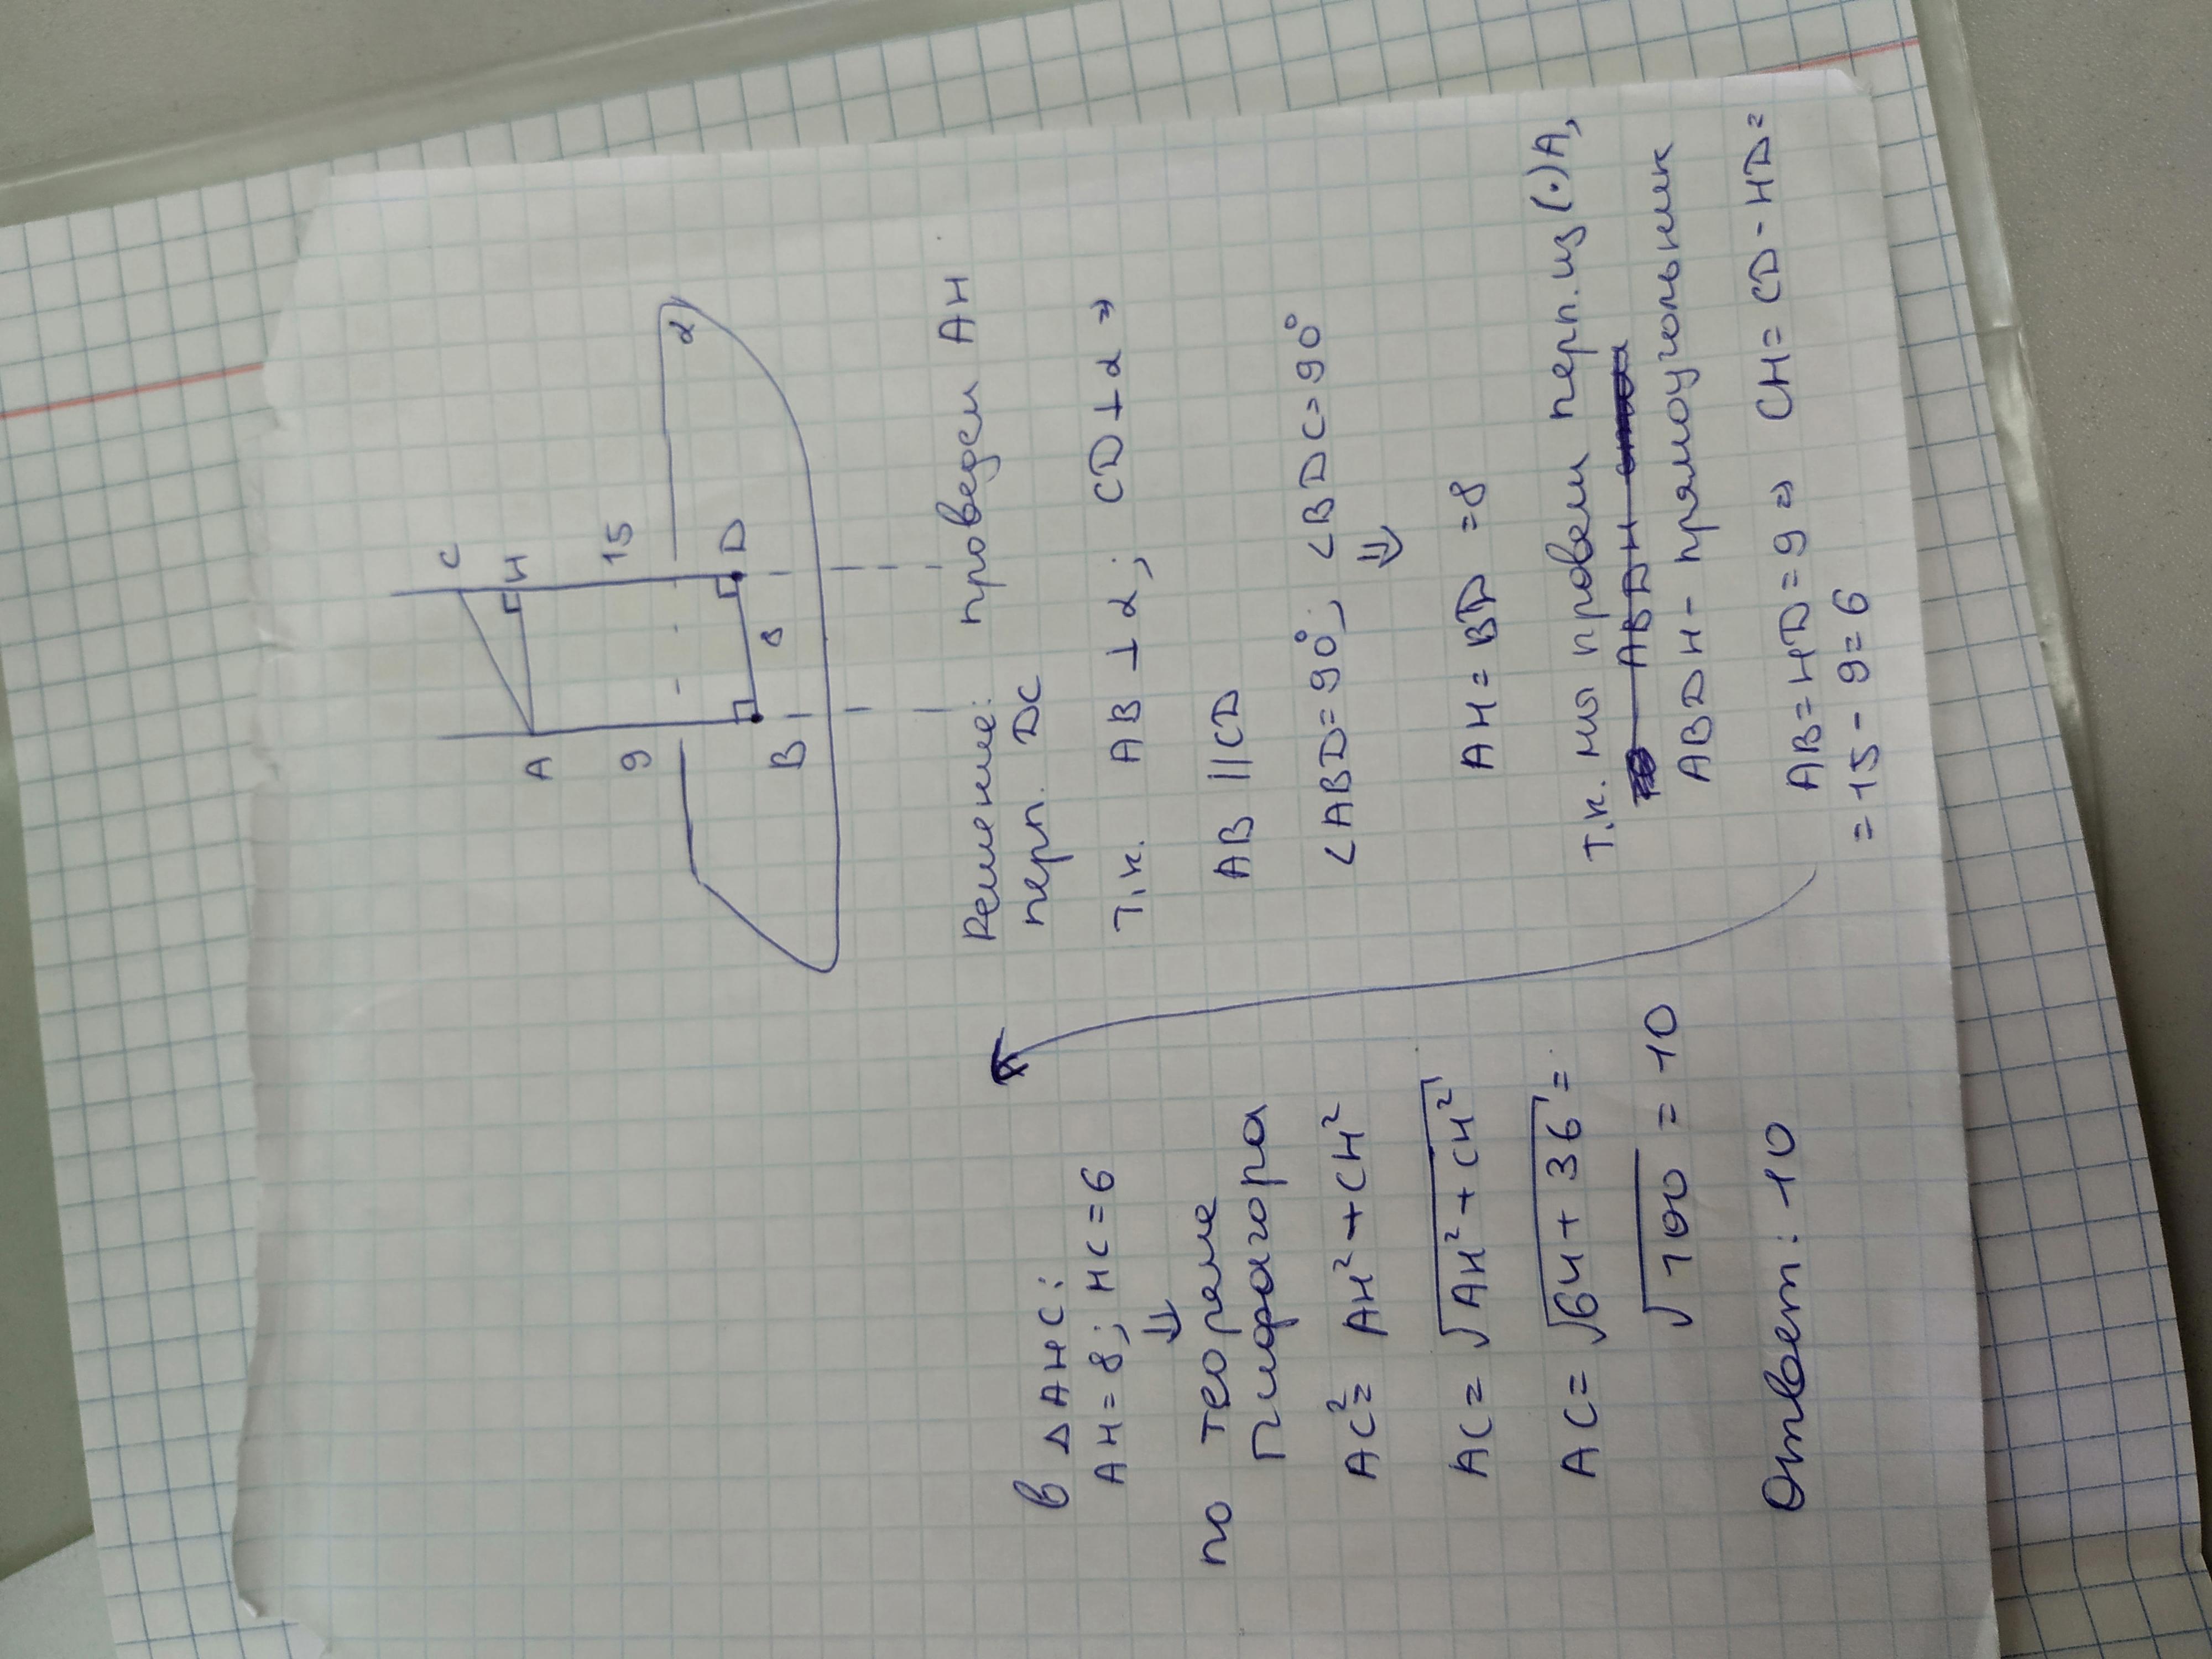 A
C
H
9
15
B
8
D
α
Решение: проведем АН
перп. DC
Т.к. AB ⊥ α; CD ⊥ α ⇒
AB || CD
∠ABD=90°; ∠BDC=90°
⇓
AH = BD = 8
Т.к. мы провели перп. из (·) A,
ABDH - прямоугольник
AB=HD=9 ⇒ CH=CD-HD=
=15-9=6
В ΔAHC:
AH=8; HC=6
⇓
по теореме
Пифагора
AC²=AH²+CH²
AC=√AH²+CH²
AC=√64+36=
√100=10
Ответ: 10